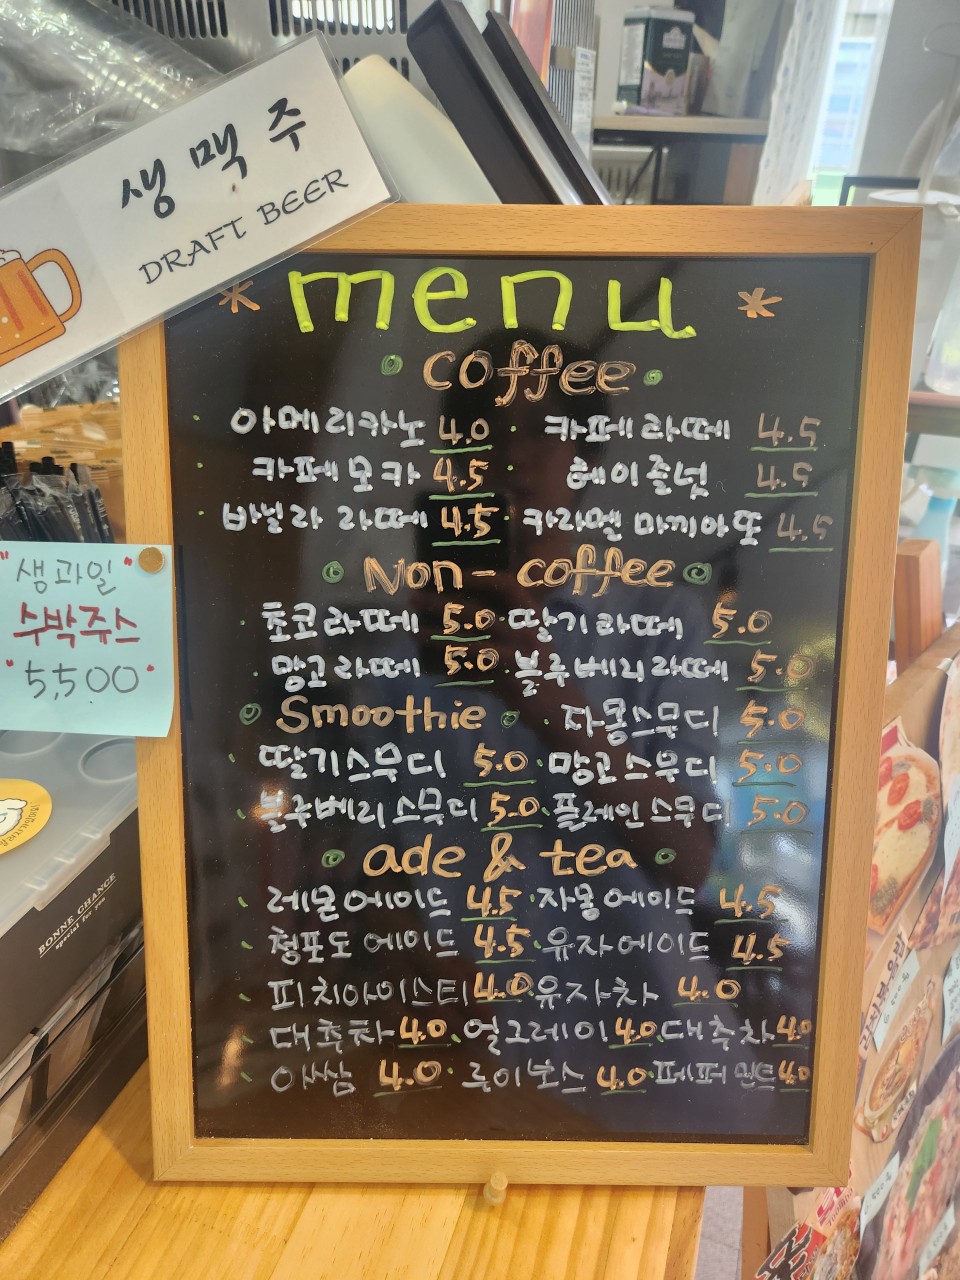 생맥주
DRAFT BEER
* menu *
coffee
아메리카노 4.0 · 카페라떼 4.5
카페모카 4.5 · 헤이즐넛 4.5
바닐라 라떼 4.5 · 카라멜 마끼아또 4.5
Non-coffee
초코라떼 5.0 · 딸기라떼 5.0
망고라떼 5.0 · 블루베리라떼 5.0
Smoothie · 자몽스무디 5.0
딸기스무디 5.0 · 망고스무디 5.0
블루베리스무디 5.0 · 플레인스무디 5.0
ade & tea
레몬에이드 4.5 · 자몽에이드 4.5
청포도에이드 4.5 · 유자에이드 4.5
피치아이스티 4.0 · 유자차 4.0
대추차 4.0 · 얼그레이 4.0 · 대추차 4.0
아쌈 4.0 · 루이보스 4.0 · 페퍼민트 4.0
"생과일"
수박쥬스
"5,500"
BONNE CHANCE
special for you